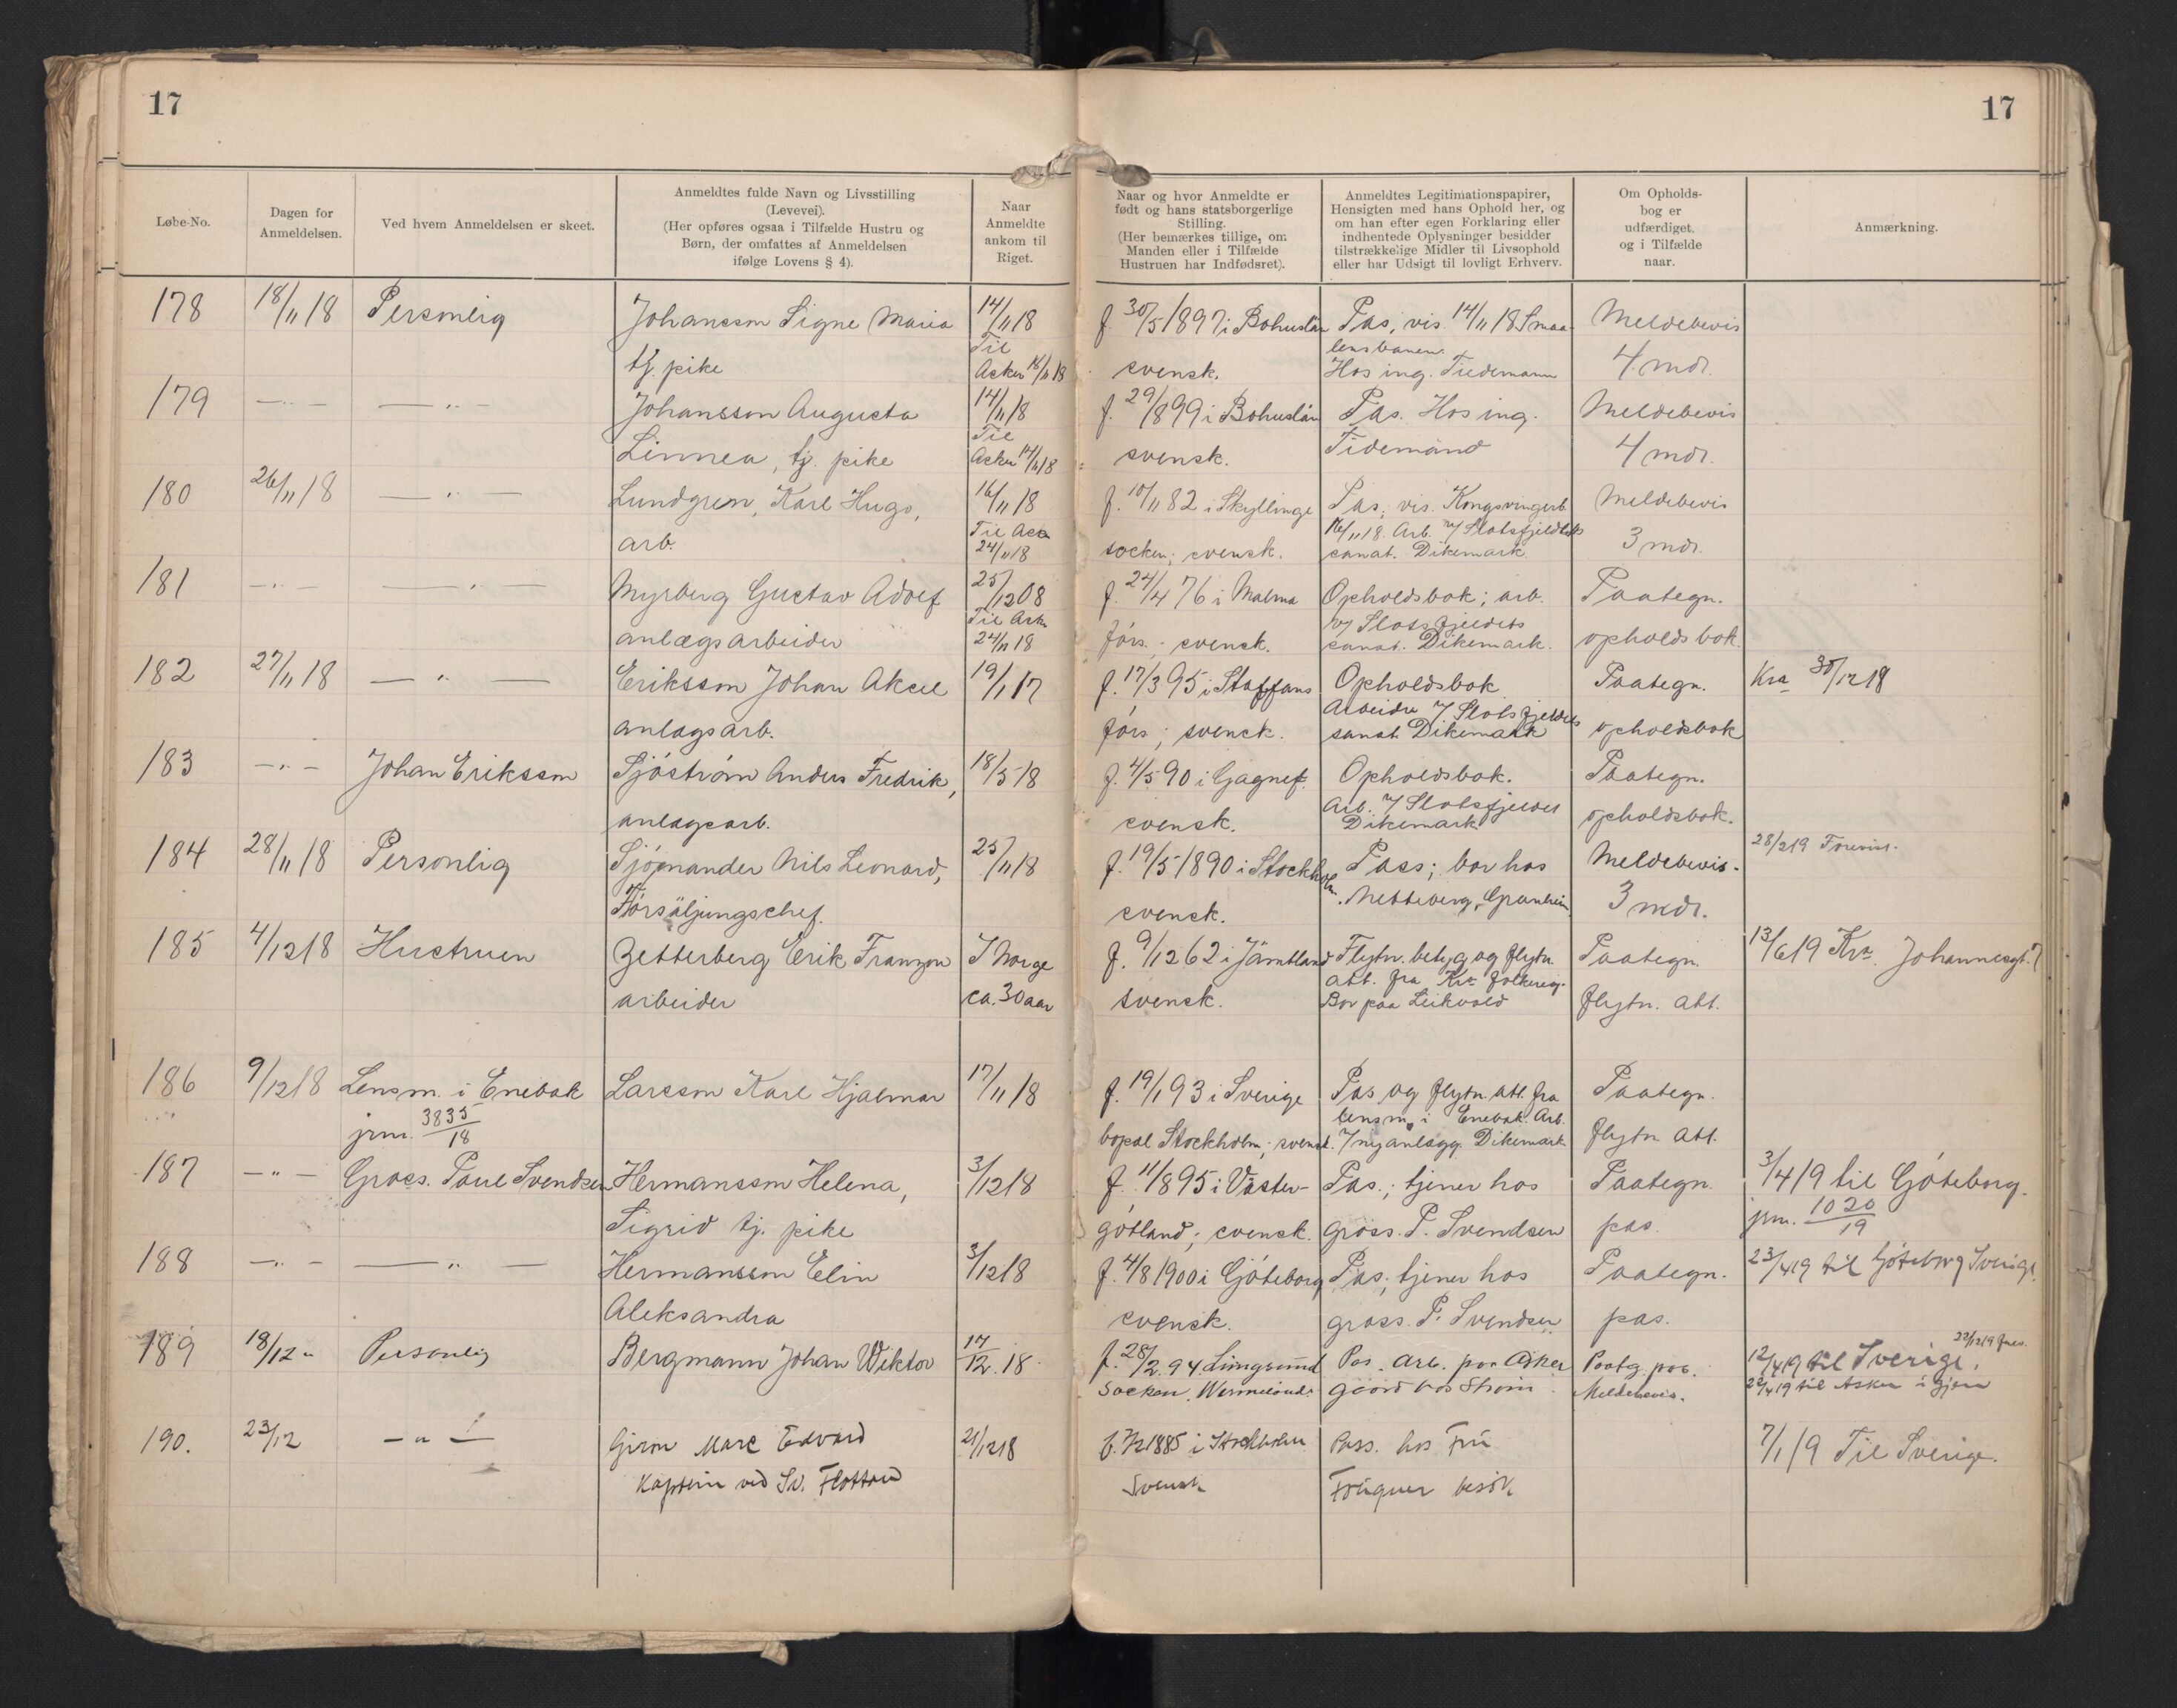 17
17
Løbe-No.
Dagen for
Anmeldelsen.
Ved hvem Anmeldelsen er skeet.
Anmeldtes fulde Navn og Livsstilling
(Levevei).
(Her opføres ogsaa i Tilfælde Hustru og
Børn, der omfattes af Anmeldelsen
ifølge Lovens § 4).
Naar
Anmeldte
ankom til
Riget.
Naar og hvor Anmeldte er
født og hans statsborgerlige
Stilling.
(Her bemærkes tillige, om
Manden eller i Tilfælde
Hustruen har Indfødsret).
Anmeldtes Legitimationspapirer,
Hensigten med hans Ophold her, og
om han efter egen Forklaring eller
indhentede Oplysninger besidder
tilstrækkelige Midler til Livsophold
eller har Udsigt til lovligt Erhverv.
Om Opholds-
bog er
udfærdiget.
og i Tilfælde
naar.
Anmærkning.
178 18/11 18 Personlig Johansson Signe Maria 14/11 18 f. 30/5 1897 i Bohuslän Pas, vis. 14/11 18 Smaa- Meldebevis
Til lensbanen.
tj. pike Asker 16/11 18 svensk. Hos ing. Tiedemann 4 mdr.
179 — " — — " — Johansson Augusta 14/11 18 f. 29/8 99 i Bohuslän Pas. Hos ing. Meldebevis
Til
Linnea, tj. pike Asker 14/11 18 svensk. Tidemand 4 mdr.
180 26/11 18 — " — Lundgren, Karl Hugo, 16/11 18 f. 10/11 82 i Skyllinge Pas, vis. Kongsvingerb. Meldebevis
Til Asker 16/11 18. Arb. v/ Slotsfjeldets
arb. 24/11 18 socken; svensk. sanat. Dikemark 3 mdr.
181 — " — — " — Myrberg Gustav Adolf 25/12 08 f. 24/4 76 i Malma Opholdsbok; arb. Paategn.
Til Asker v/ Slotsfjeldets
anlægsarbeider 24/11 18 förs.; svensk. sanat. Dikemark. opholdsbok.
182 27/11 18 — " — Eriksson Johan Aksel 19/1 17 f. 17/3 95 i Staffans Opholdsbok Paategn. Kra 30/12 18
Arbeider v/ Slotsfjeldets
anlagsarb. förs; svensk. sanat. Dikemark opholdsbok
183 — " — Johan Eriksson Sjöström Anders Fredrik, 18/5 18 f. 4/5 90 i Gagnef. Opholdsbok. Paategn.
Arb. v/ Slotsfjeldet
anlagsarb. svensk. Dikemark opholdsbok.
184 28/11 18 Personlig Sjömander Nils Leonard, 25/11 18 f. 19/5 1890 i Stockholm. Pass; bor hos Meldebevis. 28/2 19 Forevist.
Försäljungschef. svensk. Granheim 3 mdr.
185 4/12 18 Hustruen Zetterberg Erik Franzon I Norge f. 9/12 62 i Jämtland Flytn. betyg og flytn. Paategn. 13/6 19 Kra. Johannesgt. 7
att. fra Kra folkereg.
arbeider ca. 30 aar svensk. Bor paa Leikvold flytn. att.
186 9/12 18 Lensm. i Enebak Larsson Karl Hjalmar 17/11 18 f. 19/1 93 i Sverige Pas og flytn. att. fra Paategn.
lensm. i Enebak. Arb.
jrn. 3835/18 bopæl Stockholm; svensk. v/ nyanlægg. Dikemark flytn. att.
187 — " — Gross. Paul Svendsen Hermansson Helena, 3/12 18 f. 11/8 95 i Väster- Pas.; tjener hos Paategn. 3/4 19 til Göteborg.
Sigrid tj. pike götland; svensk. gross. P. Svendsen pas. jrn. 1020/19
188 — " — — " — Hermansson Elin 3/12 18 f. 4/8 1900 i Göteborg Pas; tjener hos Paategn. 23/4 19 til Göteborg Sverige.
Aleksandra svensk. gross. P. Svendsen pas.
189 18/12 " Personlig Bergmann Johan Wiktor 17/12. 18. f. 28/2. 94. Pas. Arb. paa Asker Paatg. pas. 12/4 19 til Sverige.
Socken. Wermland. gaard hos Strøm. Meldebevis. 22/4 19 til Asker igjen
190. 23/12 — " — Giron Marc Edvard 21/12 18 1885 i Stockholm Pass. hos Fru 7/1 19 Til Sverige.
Kaptein ved Sv. Flottan Svensk besök